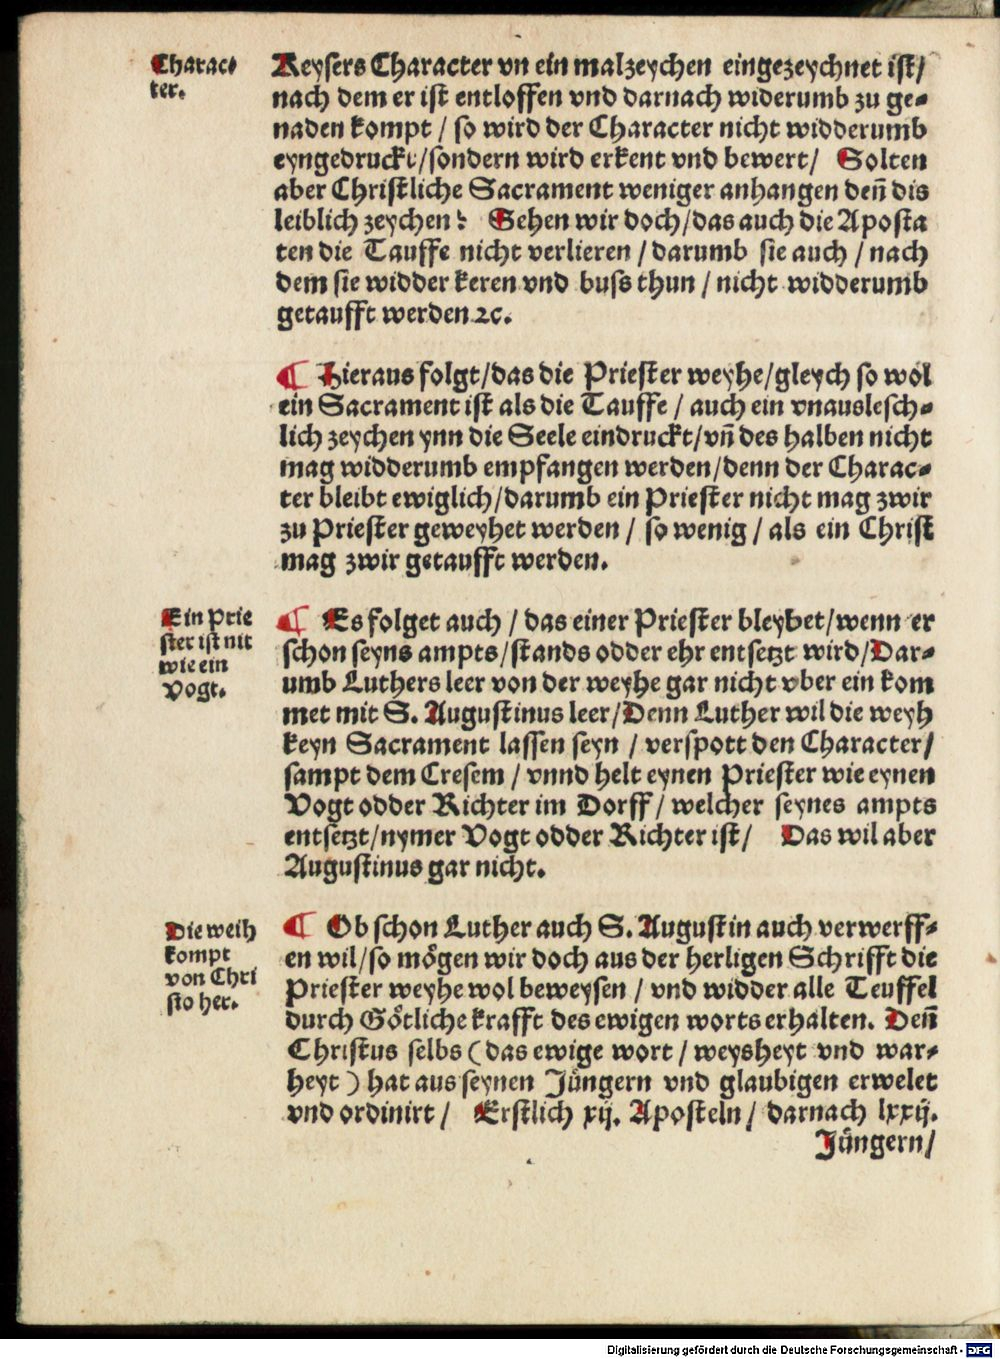 Charac⸗
ter.
Keysers Character vn ein malzeychen eingezeychnet ist/
nach dem er ist entloffen vnd darnach widerumb zu ge⸗
naden kompt / so wird der Character nicht widderumb
eyngedruckt/sondern wird erkent vnd bewert/ Solten
aber Christliche Sacrament weniger anhangen deñ dis
leiblich zeychen? Sehen wir doch/das auch die Aposta
ten die Tauffe nicht verlieren / darumb sie auch / nach
dem sie widder keren vnd buss thun / nicht widderumb
getaufft werden ꝛc.
¶ Hieraus folgt/das die Priester weyhe/gleych so wol
ein Sacrament ist als die Tauffe / auch ein vnauslesch⸗
lich zeychen ynn die Seele eindruckt/vñ des halben nicht
mag widderumb empfangen werden/denn der Charac⸗
ter bleibt ewiglich/darumb ein Priester nicht mag zwir
zu Priester geweyhet werden / so wenig / als ein Christ
mag zwir getaufft werden.
Ein Prie
ster ist nit
wie ein
Vogt.
¶ Es folget auch / das einer Priester bleybet/wenn er
schon seyns ampts/stands odder ehr entsetzt wird/Dar⸗
umb Luthers leer von der weyhe gar nicht vber ein kom
met mit S. Augustinus leer/Denn Luther wil die weyh
keyn Sacrament lassen seyn / verspott den Character/
sampt dem Cresem / vnnd helt eynen Priester wie eynen
Vogt odder Richter im Dorff/ welcher seynes ampts
entsetzt/nymer Vogt odder Richter ist/ Das wil aber
Augustinus gar nicht.
Die weih
kompt
von Chri
sto her.
¶ Ob schon Luther auch S. Augustin auch verwerff⸗
en wil/so mögen wir doch aus der herligen Schrifft die
Priester weyhe wol beweysen / vnd widder alle Teuffel
durch Götliche krafft des ewigen worts erhalten. Deñ
Christus selbs (das ewige wort / weysheyt vnd war⸗
heyt) hat aus seynen Jüngern vnd glaubigen erwelet
vnd ordinirt / Erstlich xij. Aposteln / darnach lxxij.
Jüngern/
Digitalisierung gefördert durch die Deutsche Forschungsgemeinschaft - DFG